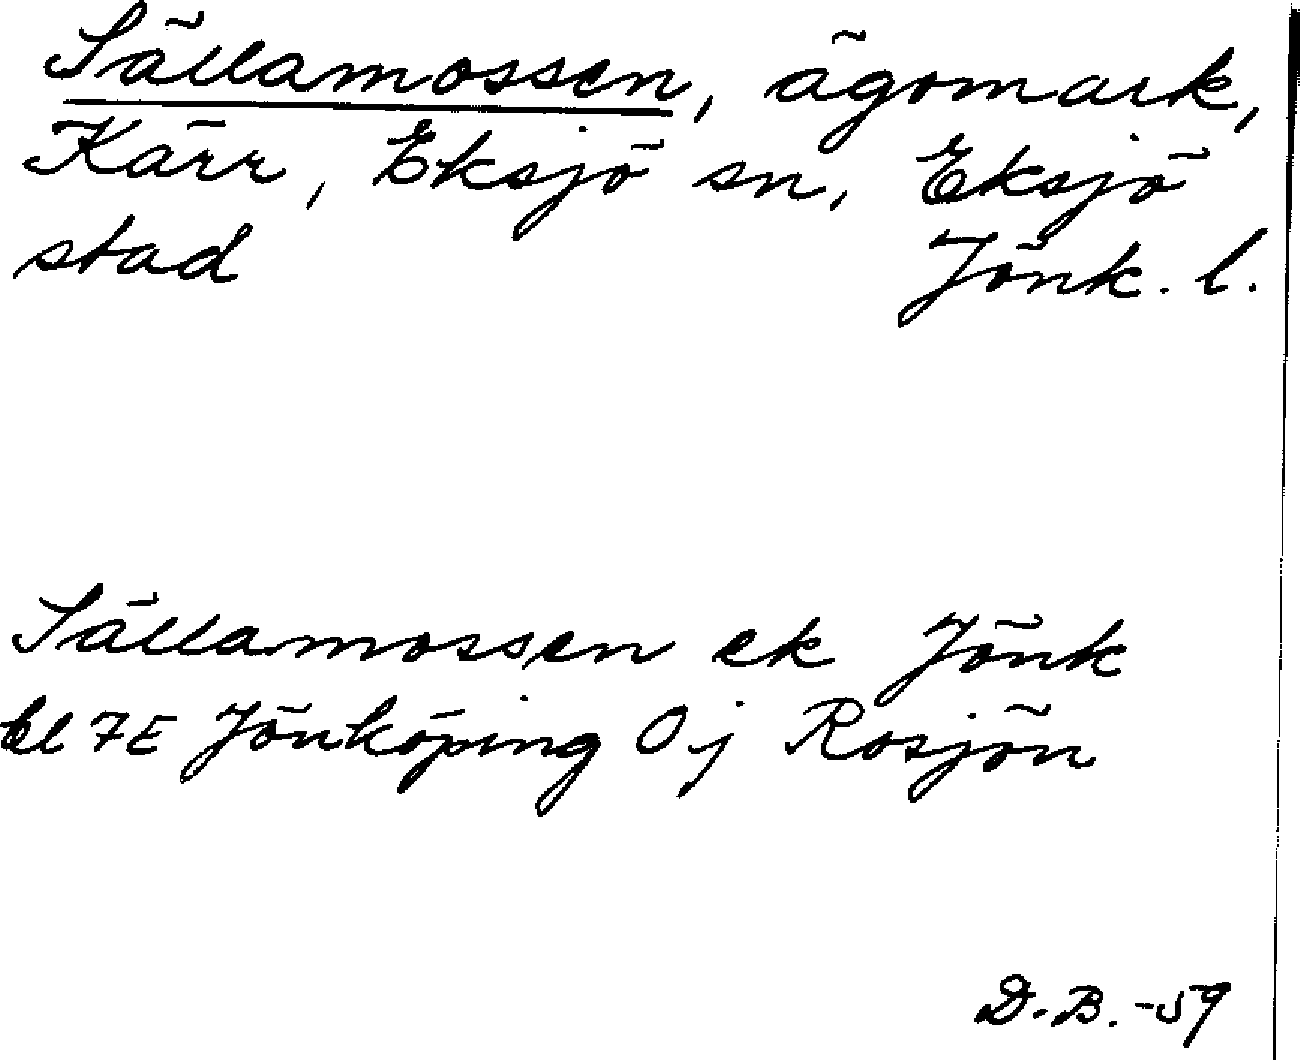 Sällamossen, ägomark,
Kärr, Eksjö sn, Eksjö
stad Jönk. l.
Sällamossen ek Jönk
bl 7E Jönköping 0 j Rosjön
D.B. -59